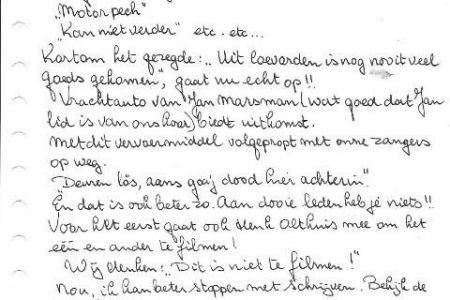 "Motorpech"
"Kan niet verder" etc. etc...
Kortom het gezegde: "Uit Coevorden is nog nooit veel
goeds gekomen", gaat nu echt op!!
Vrachtauto van Jan Marsman (wat goed dat Jan
lid is van ons koor) biedt uitkomst.
Met dit vervoermiddel volgepropt met onze zangers
op weg.
"Deuren lös, aans gaoj dood hier achterin"
En dat is ook beter zo. Aan dooie leden heb je niets!!
Voor het eerst gaat ook Henk Althuis mee om het
eén en ander te filmen!
Wij denken: "Dit is niet te filmen!"
Nou, ik kan beter stoppen met schrijven. Bekijk de